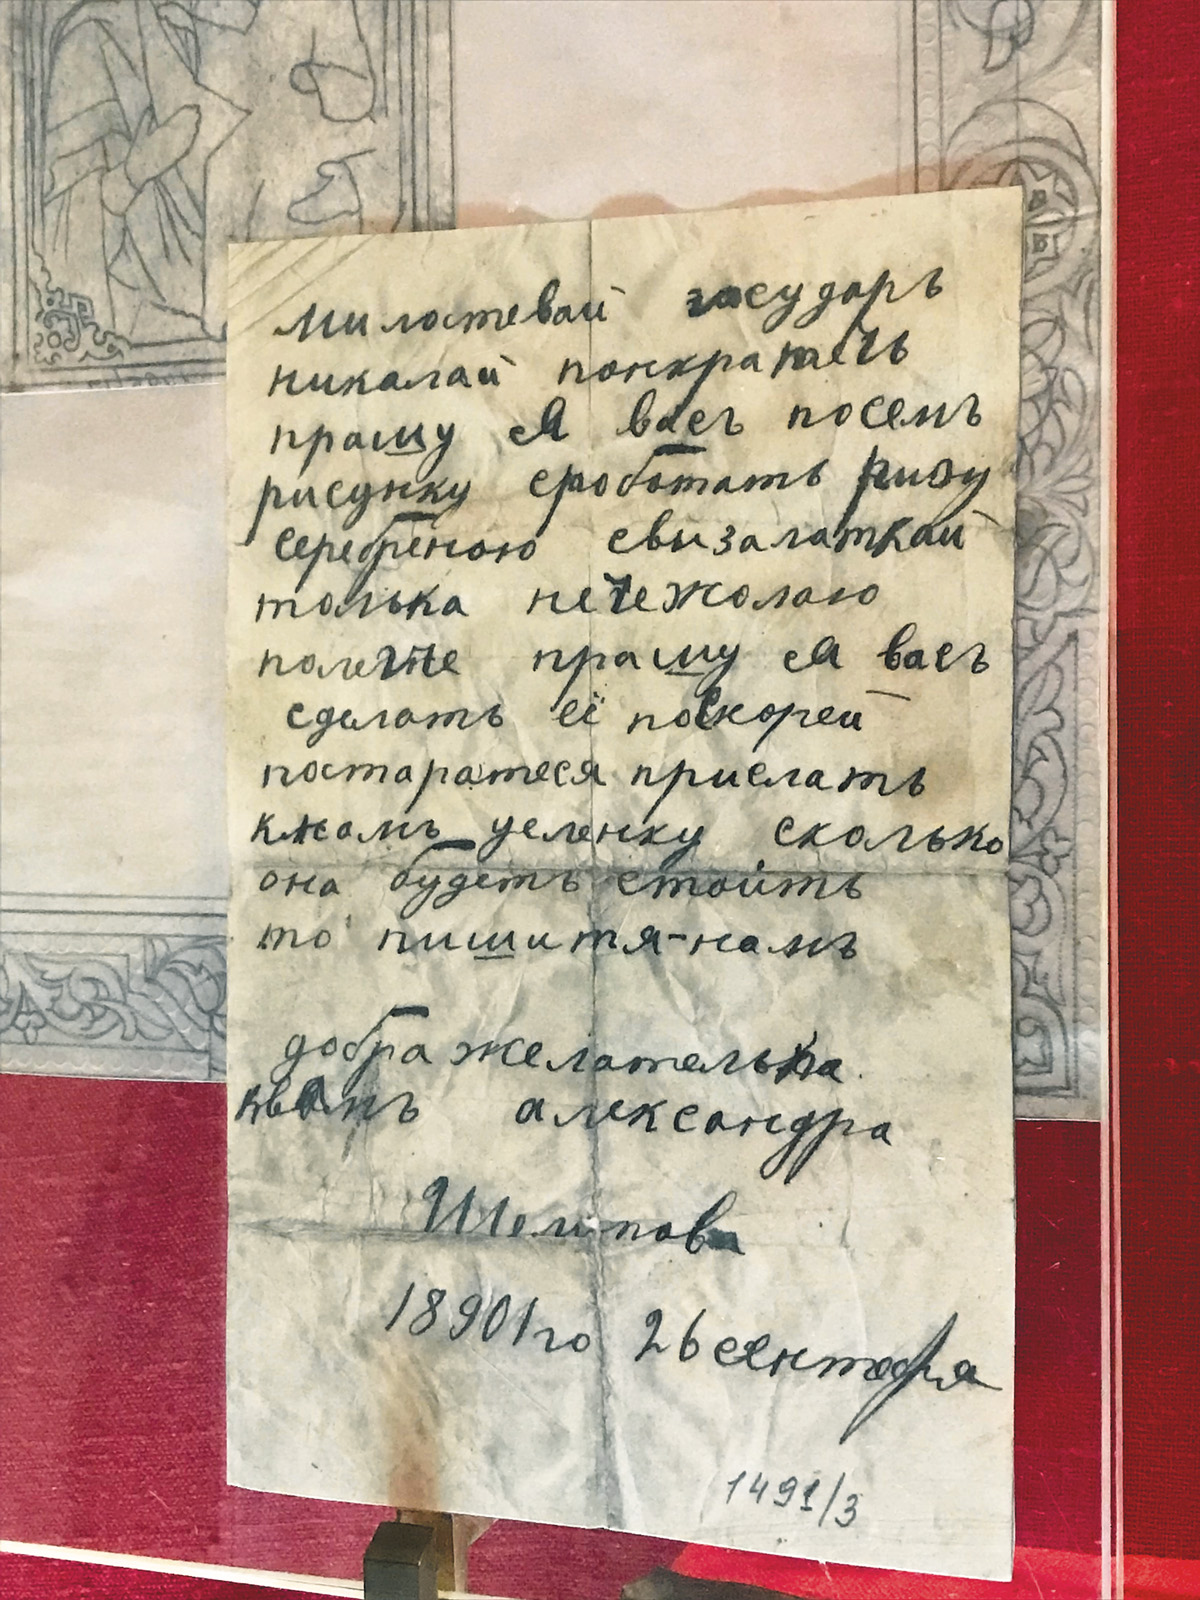 милостевай государь
никалай понкратечь
прашу я васъ посемъ
рисунку сработать ризу
серебреною свызалаткай
толька нечежолаю
полечче прашу я васъ
сделать её поскорей
постаратеся прислать
кнамъ уеленку сколько
она будеть стоить
то пишитя-намъ
добра желателька
квамъ александра
Шелипова
18901го 26 сентебря
1491/3
В
Б